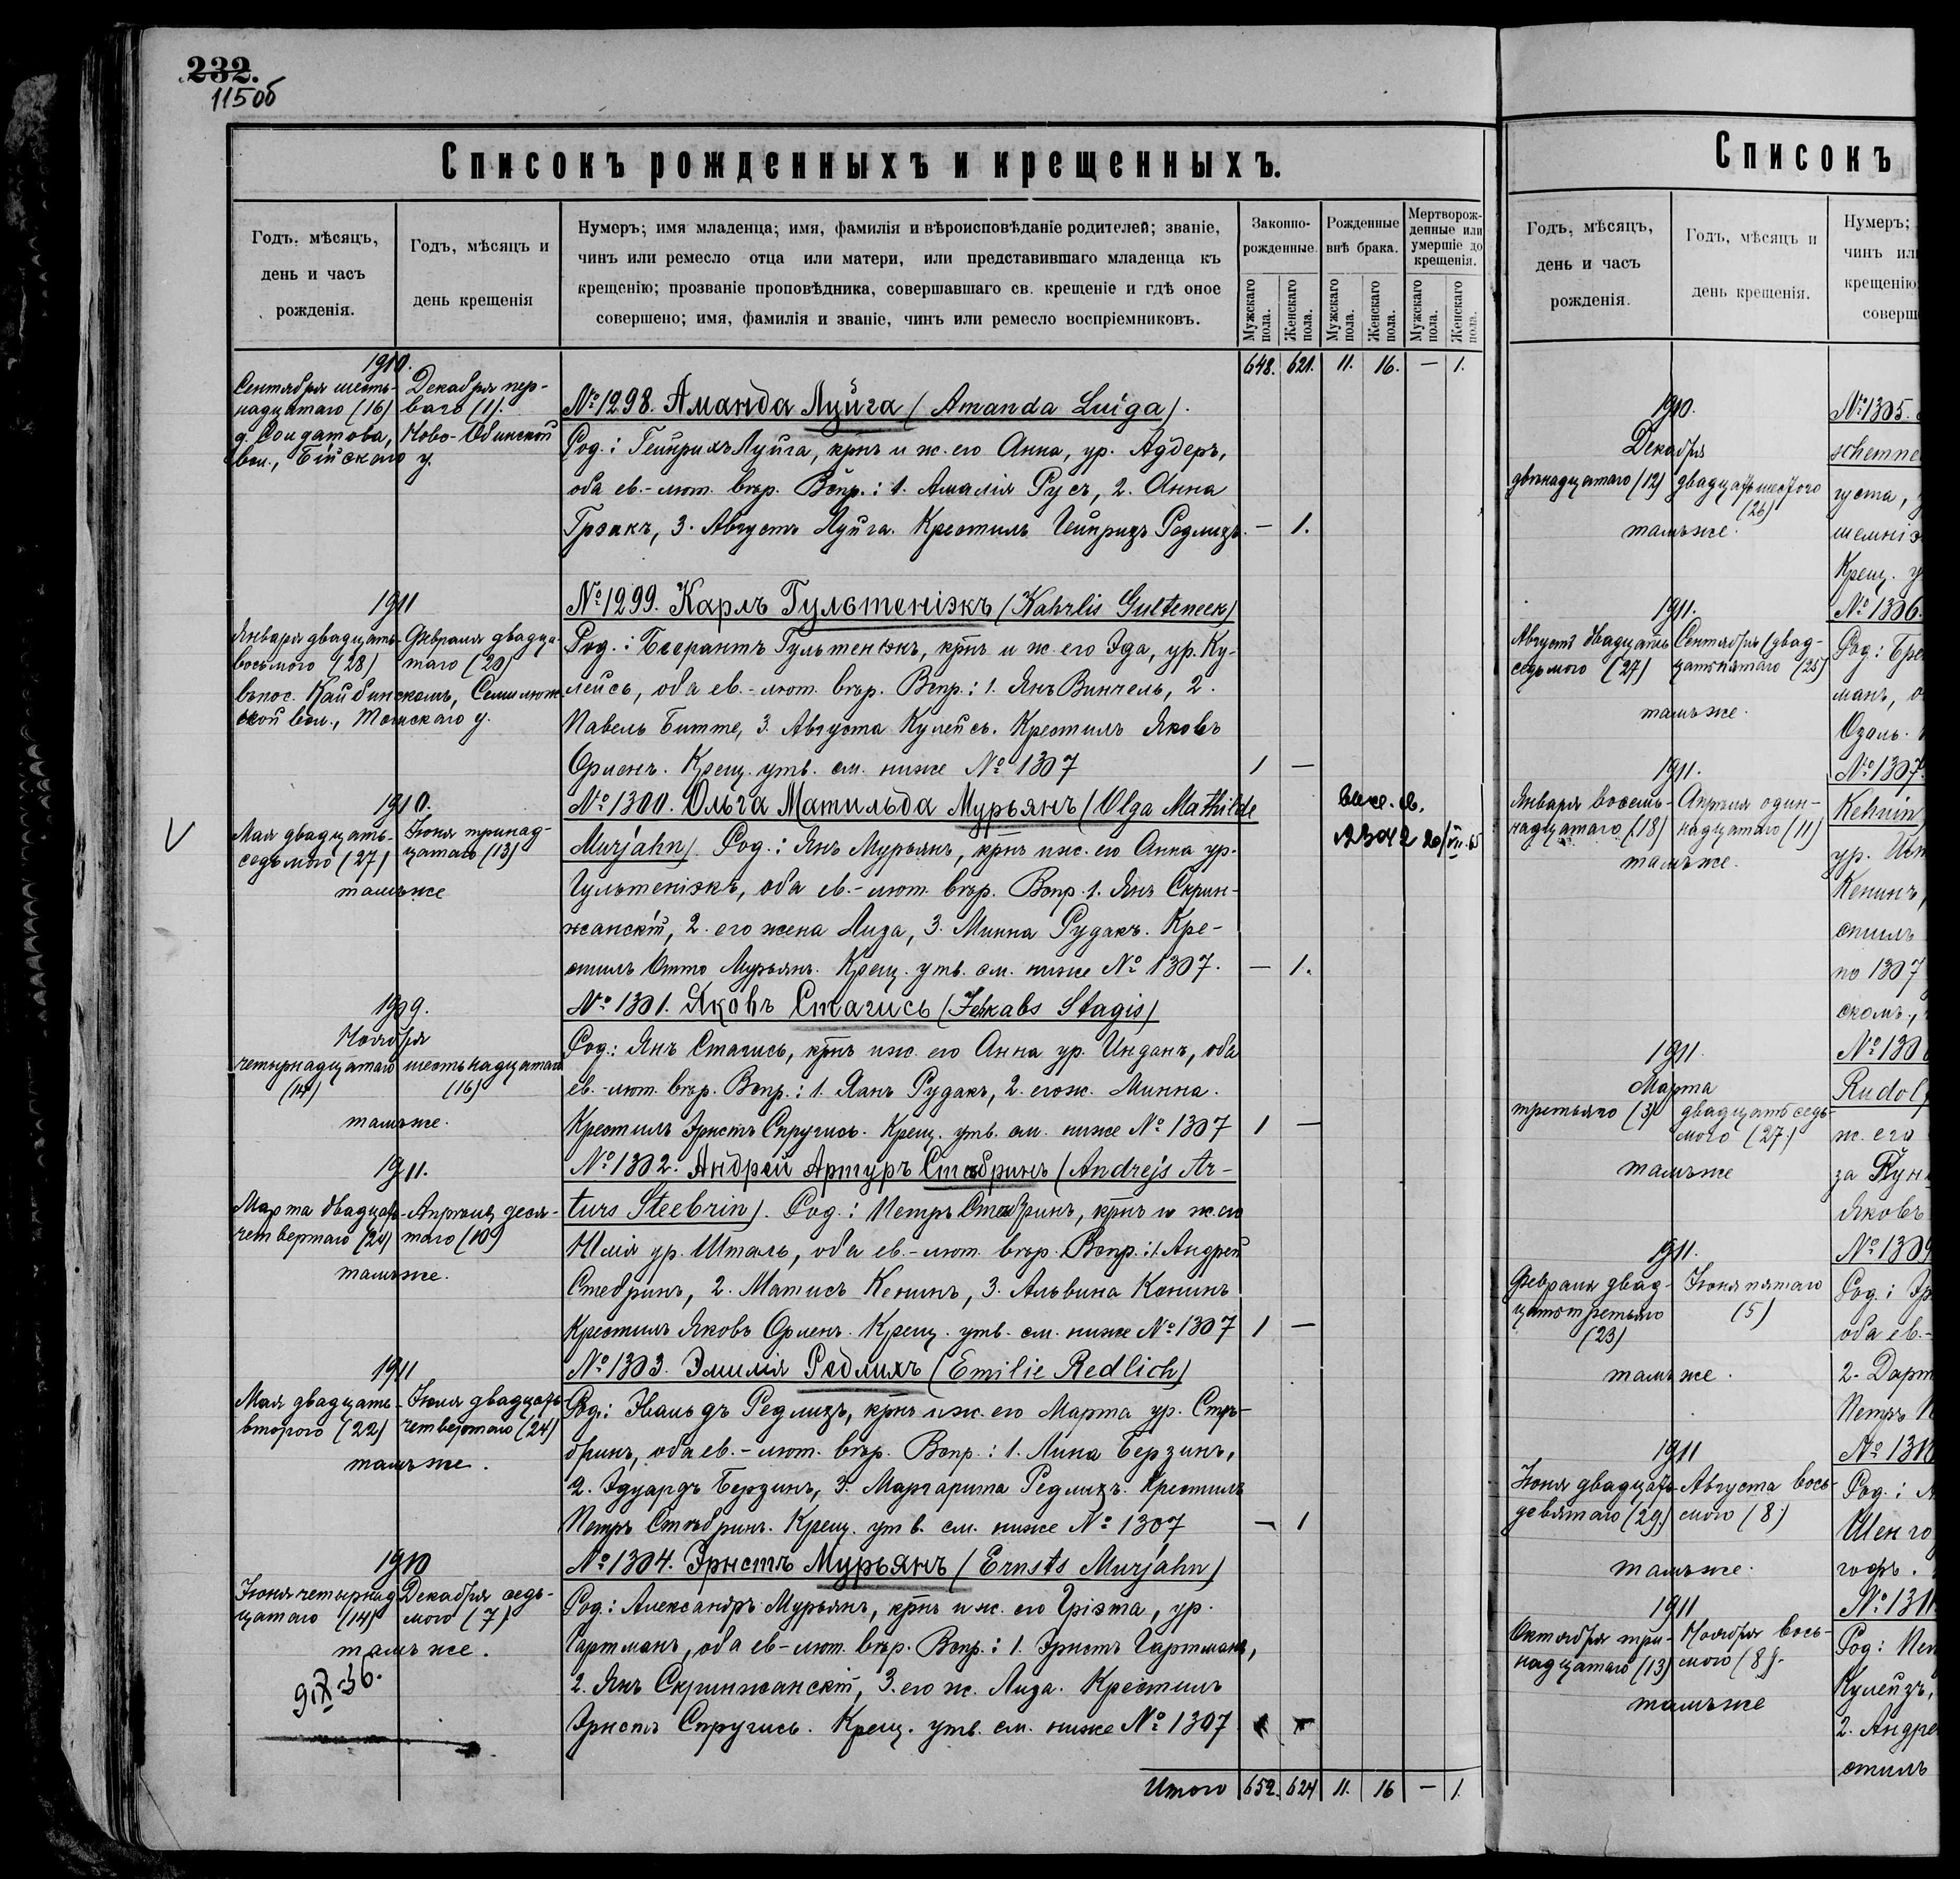 232.
115об
Списокъ рожденныхъ и крещенныхъ.
Годъ, мѣсяцъ,
день и часъ
рожденія.
Годъ, мѣсяцъ и
день крещенія
Нумеръ; имя младенца; имя, фамилія и вѣроисповѣданіе родителей; званіе,
чинъ или ремесло отца или матери, или представившаго младенца къ
крещенію; прозваніе проповѣдника, совершавшаго св. крещеніе и гдѣ оное
совершено; имя, фамилія и званіе, чинъ или ремесло воспріемниковъ.
Законно-
рожденные.
Рожденные
внѣ брака.
Мертворож-
денные или
умершіе до
крещенія.
Мужскаго пола.
Женскаго пола.
Мужскаго пола.
Женскаго пола.
Мужскаго пола.
Женскаго пола.
648. 621. 11. 16. — 1.
1910.
Сентября шест-
надцатаго (16)
Декабря пер-
ваго (1).
д. Солдатова, Ново-Обинской
вол., Бійскаго у.
№ 1298. Аманда Луйга (Amanda Luiga).
Род.: Гейнрихъ Луйга, крнъ и ж. его Анна, ур. Аддеръ,
оба ев.-лют. вѣр. Вспр.: 1. Амалія Русъ, 2. Анна
Грэакъ, 3. Августъ Луйга. Крестилъ Гейнрихъ Редлихъ. — 1.
1911
Января двадцать-
восьмого (28)
Февраля двадца-
таго (20)
въ пос. Кайбинскомъ, Семилюж-
ской вол., Томскаго у.
№ 1299. Карлъ Гультеніэкъ (Kahrlis Gulteneek)
Род.: Гультеніэкъ, крнъ и ж. его Эда, ур. Ку-
лейсъ, оба ев.-лют. вѣр. Вспр.: 1. Янъ Винчель, 2.
Павелъ Битте, 3. Августа Кулейсъ. Крестилъ Яковъ
Орленъ. Крещ. утв. см. ниже № 1307 1 —
1910.
Мая двадцать-
седьмого (27)
Іюня тринад-
цатаго (13)
тамъ же
№ 1300. Ольга Матильда Мурьянъ (Olga Mathilde
Murjahn). Род.: Янъ Мурьянъ, крнъ и ж. его Анна ур.
Гультеніэкъ, оба ев.-лют. вѣр. Вспр. 1. Янъ Скрин-
жанскій, 2. его жена Лиза, 3. Минна Рудакъ. Кре-
стилъ Отто Мурьянъ. Крещ. утв. см. ниже № 1307. — 1.
1909.
Ноября
четырнадцатаго
(14)
шестнадцатаго
(16)
тамъ же.
№ 1301. Яковъ Стагисъ (Jehkabs Stagis)
Род.: Янъ Стагисъ, крнъ и ж. его Анна ур. Инданъ, оба
ев.-лют. вѣр. Вспр.: 1. Янъ Рудакъ, 2. его ж. Минна.
Крестилъ Эрнстъ Спругисъ. Крещ. утв. см. ниже № 1307 1 —
1911.
Марта двадцать-
четвертаго (24)
Апрѣля деся-
таго (10)
тамъ же.
№ 1302. Андрей Артуръ Стебринъ (Andrejs Ar-
turs Steebrin). Род.: Петръ Стебринъ, крнъ и ж. его
Юлія ур. Шталь, оба ев.-лют. вѣр. Вспр.: 1. Андрей
Стебринъ, 2. Матисъ Кенинъ, 3. Альвина Кенинъ
Крестилъ Яковъ Орленъ. Крещ. утв. см. ниже № 1307 1 —
1911
Мая двадцать-
второго (22)
Іюля двадцать-
четвертаго (24)
тамъ же.
№ 1303. Эмилія Редлихъ (Emilie Redlich)
Род.: Эвальдъ Редлихъ, крнъ и ж. его Марта ур. Стѣ-
бринъ, оба ев.-лют. вѣр. Вспр.: 1. Лина Берзинъ,
2. Эдуардъ Берзинъ, 3. Маргарита Редлихъ. Крестилъ
Петръ Стѣбринъ. Крещ. утв. см. ниже № 1307 — 1
1910
Іюня четырнад-
цатаго (14)
Декабря седь-
мого (7)
тамъ же.
№ 1304. Эрнстъ Мурьянъ (Ernsts Murjahn)
Род.: Александръ Мурьянъ, крнъ и ж. его Гріэта, ур.
Гартманъ, оба ев-лют. вѣр. Вспр.: 1. Эрнстъ Гартманъ,
2. Янъ Скринжанскій, 3. его ж. Лиза. Крестилъ
Эрнстъ Спругисъ. Крещ. утв. см. ниже № 1307
Итого 652. 624 11. 16 — 1.
Списокъ
Годъ, мѣсяцъ,
день и часъ
рожденія.
Годъ, мѣсяцъ и
день крещенія.
Нумеръ;
чинъ или
крещенію
соверш
1910.
Декабря
двѣнадцатаго (12) двадцать шестого
(26)
тамъ же.
№ 1305.
schemne
густа,
шемніэ
Крещ. у
1911.
Августа двадцать
седьмого (27)
Сентября двад-
цать пятаго (25)
тамъ же.
№ 1306.
Род.: Бре
манъ, о
Озоль.
1911.
Января восем-
надцатаго (18)
Апрѣля один-
надцатаго (11)
тамъ же.
№ 1307.
Kehnin
ур.
Кенинъ,
стилъ
по 1307
скомъ,
1911.
Марта
третьяго (3) двадцать седь-
мого (27)
тамъ же
№ 130
Rudol
ж. его
за Кун
Яковъ
1911.
Февраля двад-
цать третьяго
(23)
Іюня пятаго
(5)
тамъ же.
№ 1309
Род.: Эр
оба ев.-
2. Дарт
Петръ
1911
Іюня двадцать
девятаго (29)
Августа вось-
мого (8)
тамъ же.
№ 1310
Род.:
Шенго
гофъ.
1911
Октября три-
надцатаго (13)
Ноября вось-
мого (8).
тамъ же
№ 1311
Род: Пет
Кулейзъ,
2. Андре
стилъ